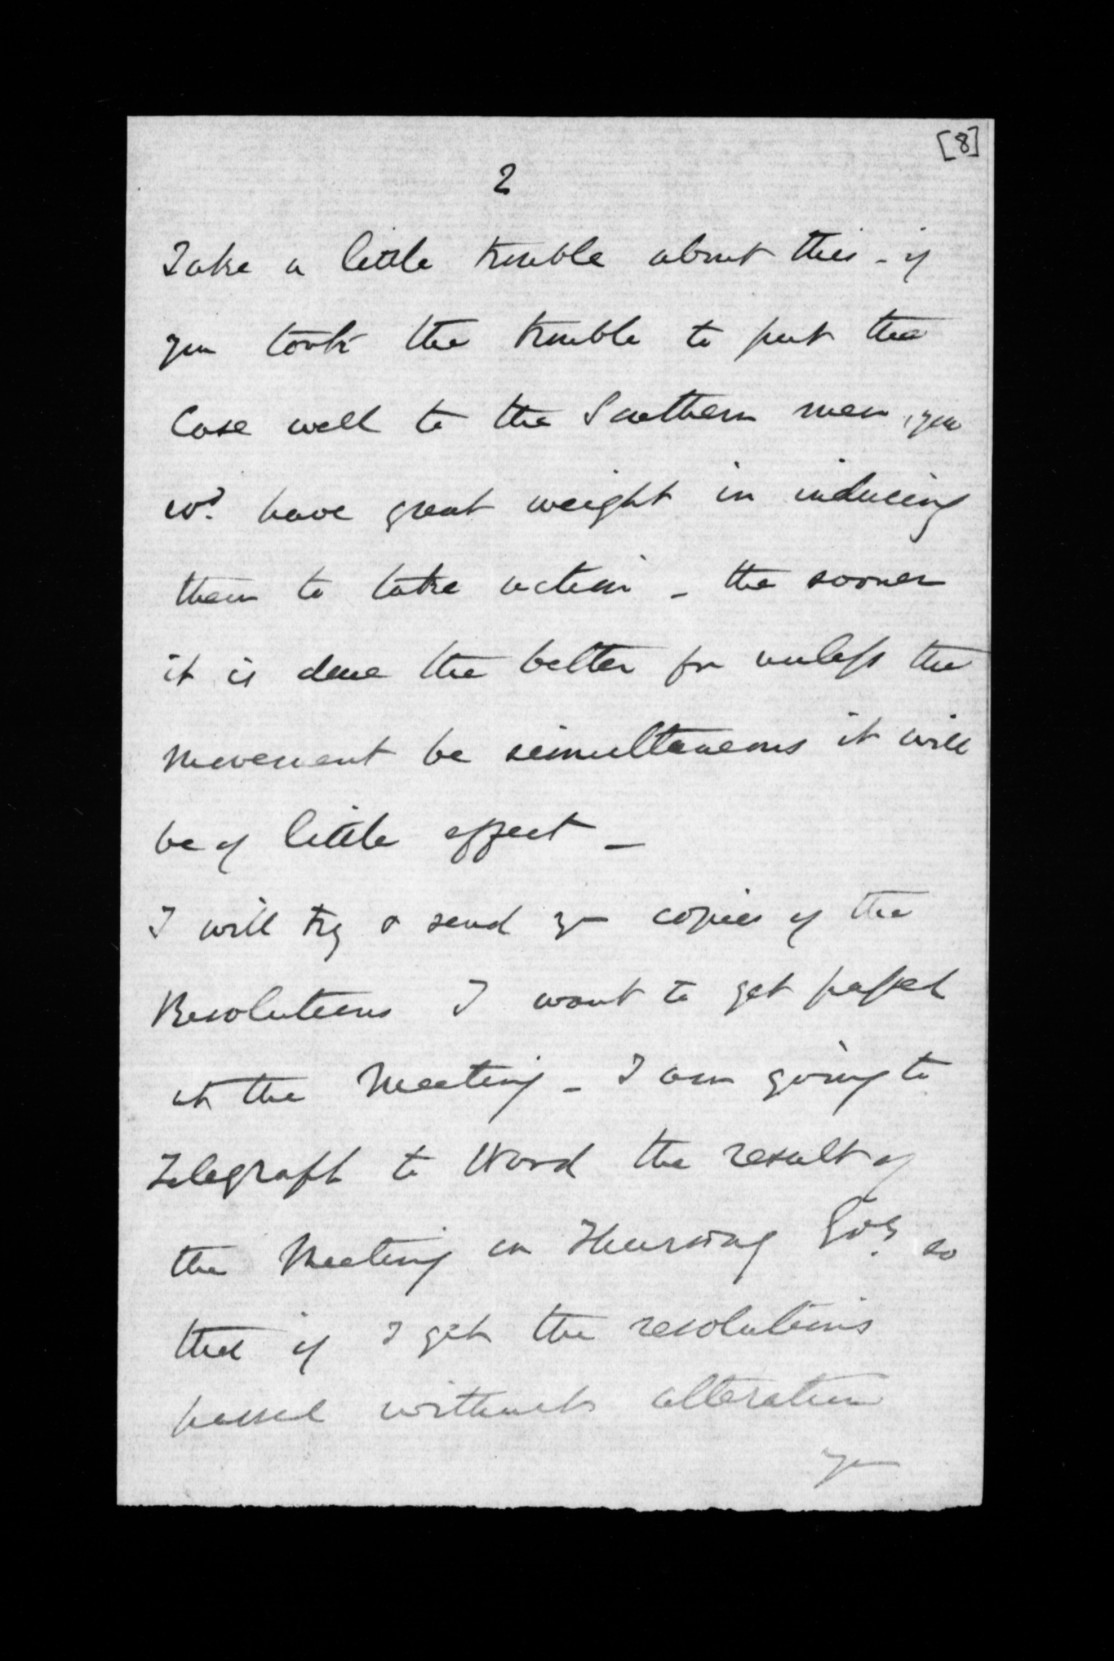 [8]
2
Take a little trouble about this - if
you took the trouble to put the
Case well to the Southern men, you
wd. have great weight in inducing
them to take action - the sooner
it is done the better for unless the
movement be simultaneous it will
be of little effect -
I will try & send yr copies of the
Resolutions I want to get passed
at the Meeting - I am going to
Telegraph to Ward the result of
the Meeting on Thursday Evg. so
that if I get the resolutions
passed without alteration
yr